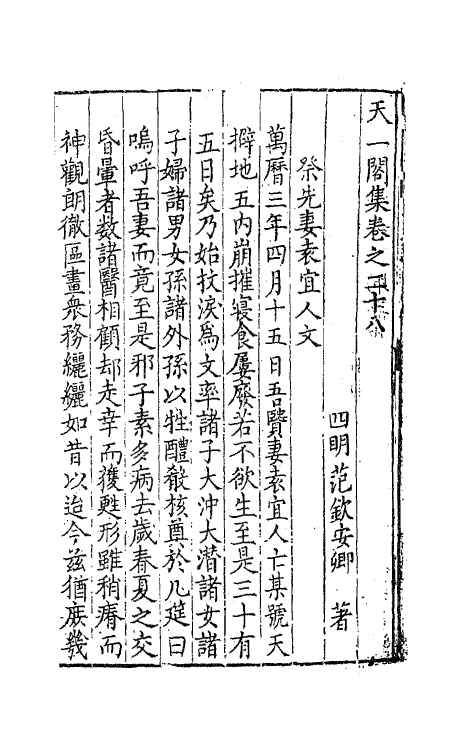 天一閣集卷之二十八
四明范欽安卿　著
祭先妻袁宜人文
萬曆三年四月十五日吾賢妻袁宜人亡某號天
擗地五内崩摧寢食屢廢若不欲生至是三十有
五日矣乃始抆淚爲文率諸子大沖大潛諸女諸
子婦諸男女孫諸外孫以牲醴殽核奠於几筵曰
嗚呼吾妻而竟至是邪子素多病去歲春夏之交
昏暈者數諸醫相顧却走幸而獲甦形雖稍瘠而
神觀朗徹區畫衆務纚纚如昔以迨今茲猶庶幾